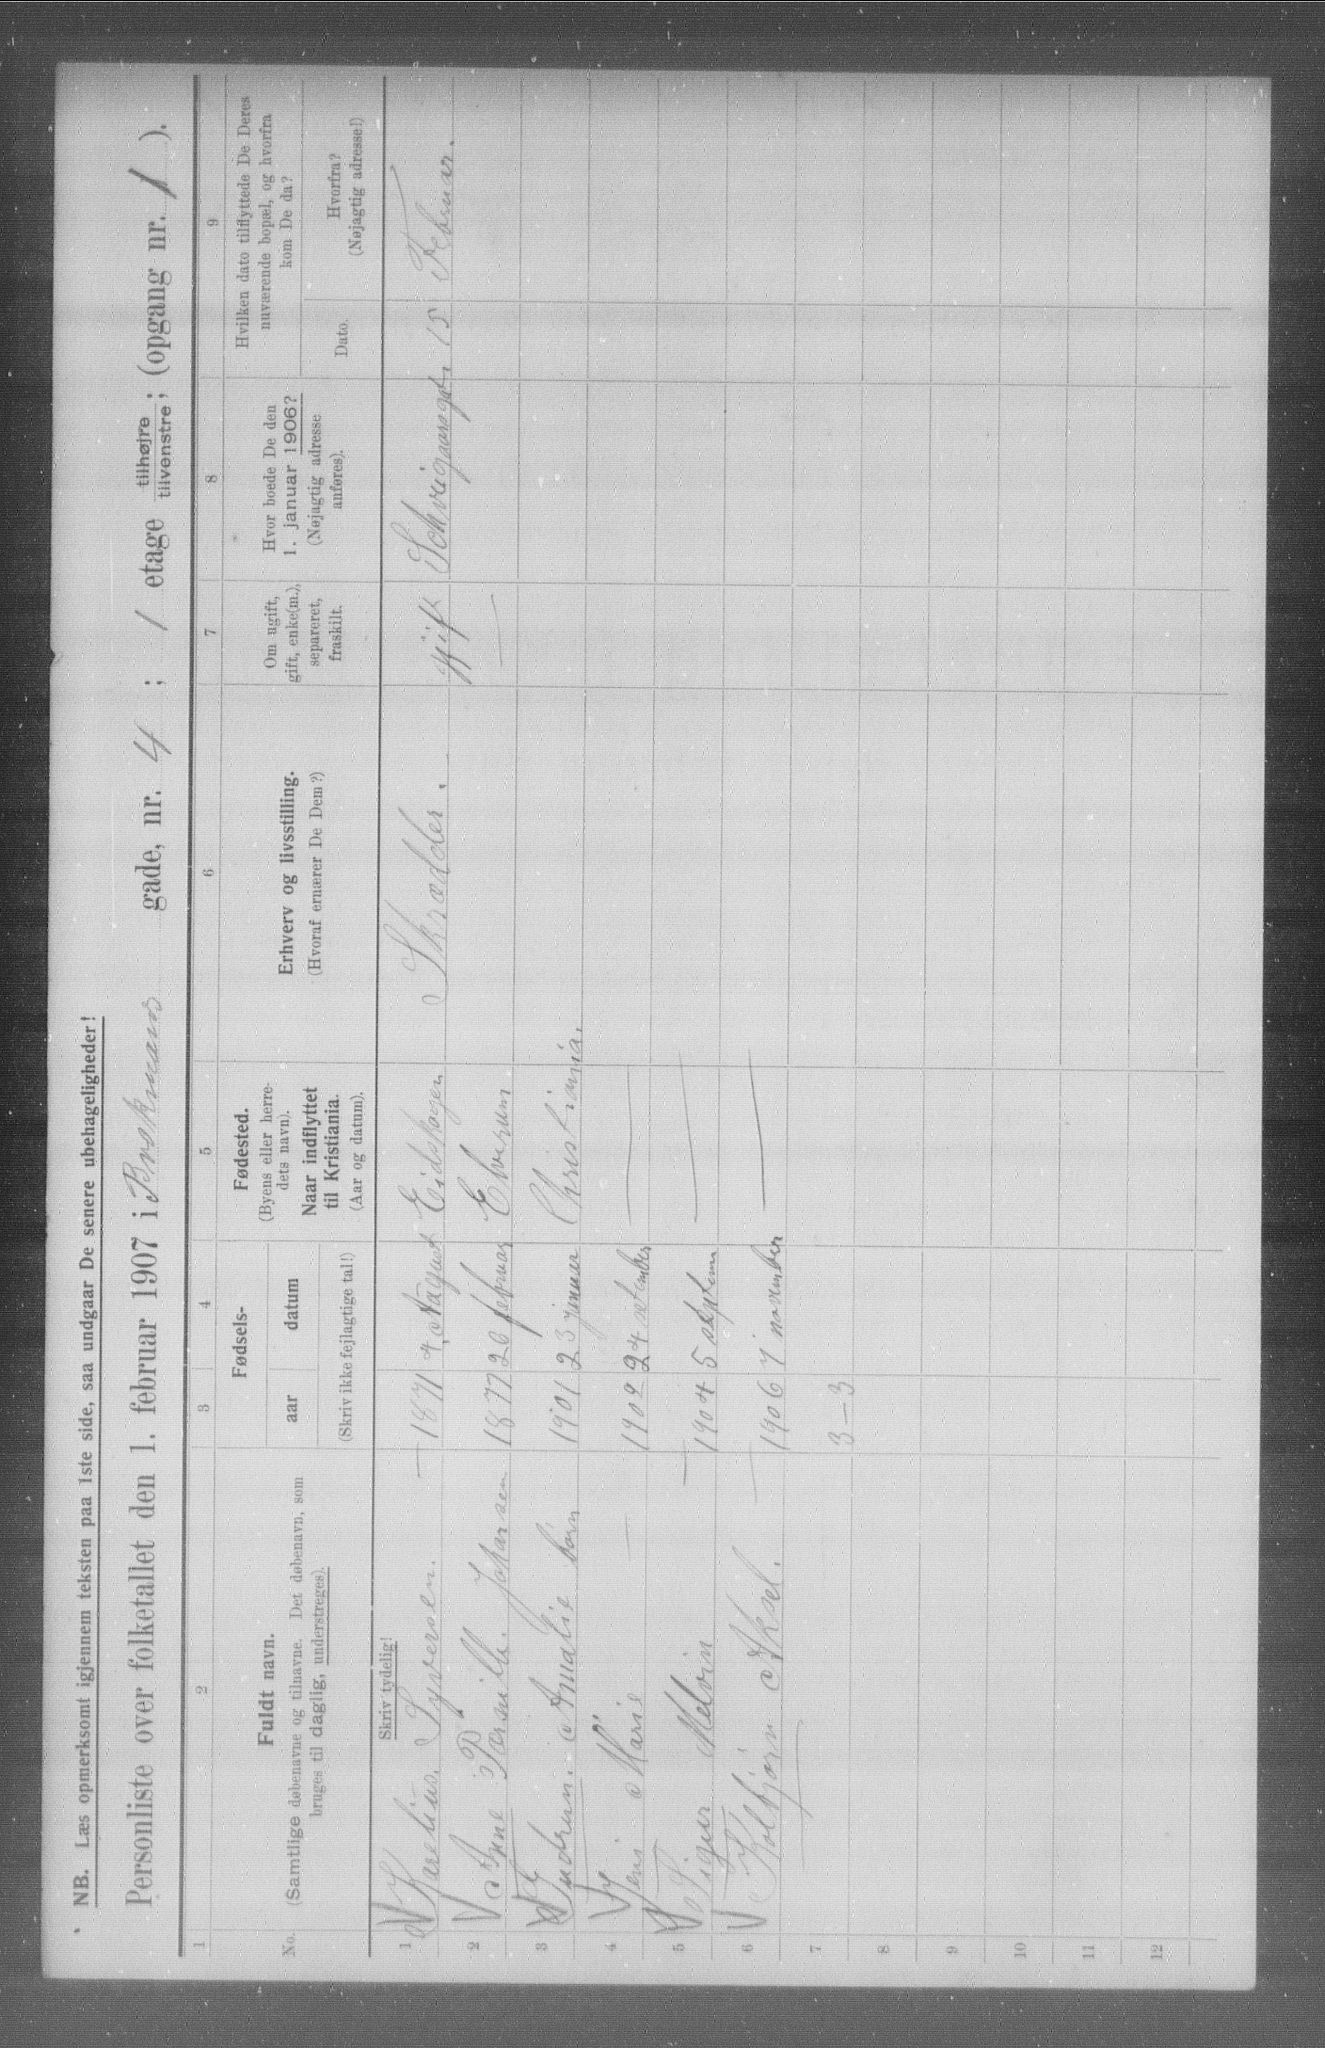 NB. Læs opmerksomt igjennem teksten paa 1ste side, saa undgaar De senere ubehageligheder!
Personliste over folketallet den 1. februar 1907 i Brokmans gade, nr. 4 ; 1 etage tilhøjre tilvenstre; (opgang nr. 1 ).
1 2 3 4 5 6 7 8 9
No.
Fuldt navn.
(Samtlige døbenavne og tilnavne. Det døbenavn, som
bruges til daglig, understreges).
Fødsels-
aar datum
(Skriv ikke fejlagtige tal!)
Fødested.
(Byens eller herre-
dets navn).
Naar indflyttet
til Kristiania.
(Aar og datum).
Erhverv og livsstilling.
(Hvoraf ernærer De Dem?)
Om ugift,
gift, enke(m.),
separeret,
fraskilt.
Hvor boede De den
1. januar 1906?
(Nøjagtig adresse
anføres).
Hvilken dato tilflyttede De Deres
nuværende bopæl, og hvorfra
kom De da?
Dato.
Hvorfra?
(Nøjagtig adresse!)
Skriv tydelig!
1 Karelius Syversen. — 1871 4 August Eidskogen Skrædder. gift Schveigaardsgd. 15 Februar.
2 Anne Pærnille Johansen 1877 20 februar Elverum —
3 Gudrun Amalie barn 1901 23 januar Christiania.
4 Jeni Marie — 1902 24 —
5 Sigur Melvin — 1904 5 —
6 Kolbjørn Aksel. — 1906 7 november —
7 3-3
8
9
10
11
12